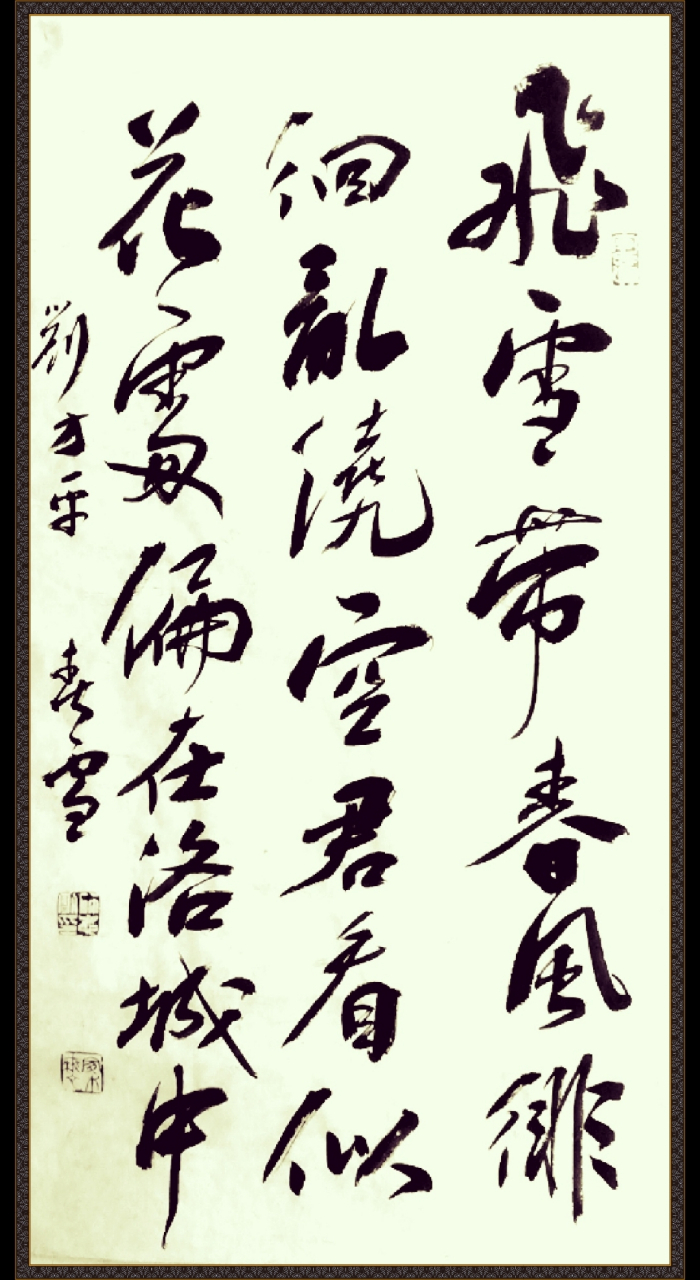 飛雪帶春風徘
徊亂繞空君看似
花處偏在洛城中
劉方平 春雪